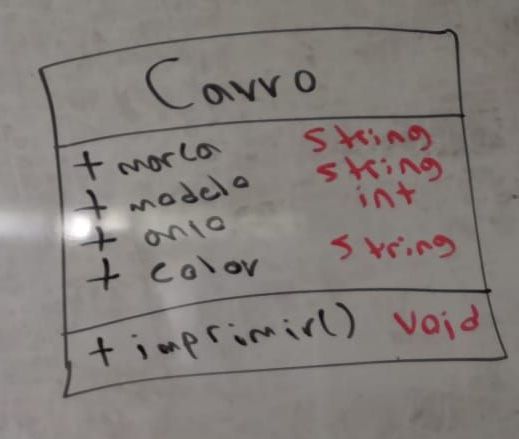 Carro
+ marca string
+ modelo string
+ anio int
+ color string
+ imprimir() void